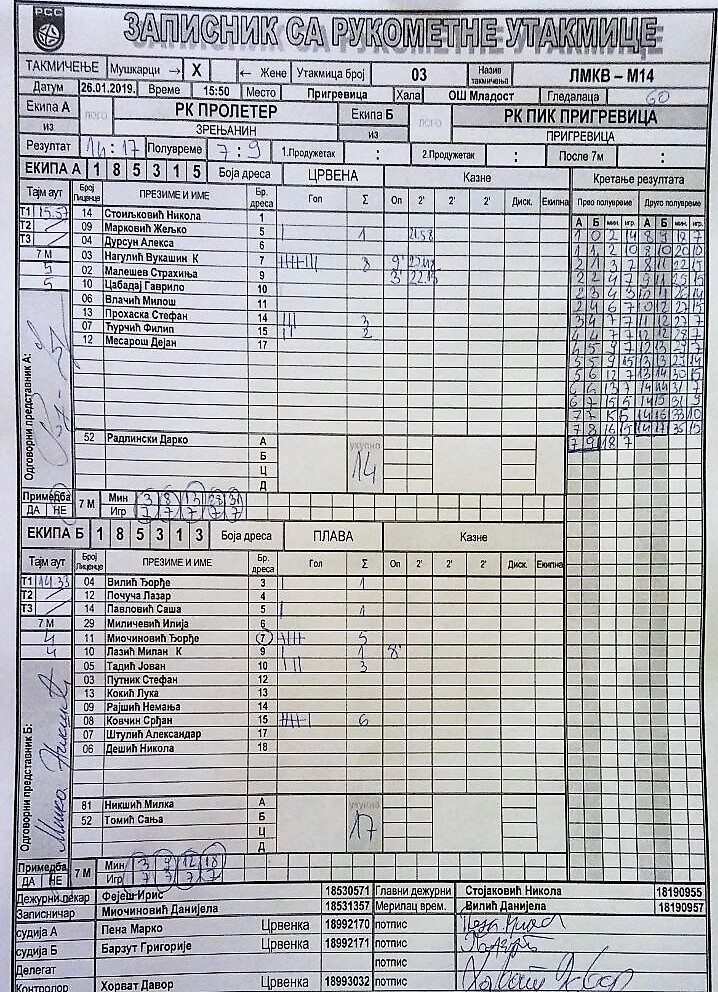 РСС
ЗАПИСНИК СА РУКОМЕТНЕ УТАКМИЦЕ
ТАКМИЧЕЊЕ Мушкарци → X ← Жене Утакмица број 03 Назив такмичења ЛМКВ – М14
Датум 26.01.2019. Време 15:50 Место Пригревица Хала ОШ Младост Гледалаца 60
Екипа А ЛОГО РК ПРОЛЕТЕР Екипа Б ЛОГО РК ПИК ПРИГРЕВИЦА
из ЗРЕЊАНИН из ПРИГРЕВИЦА
Резултат 14 : 17 Полувреме 7 : 9 1.Продужетак : 2.Продужетак : После 7м :
ЕКИПА А 1 8 5 3 1 5 Боја дреса ЦРВЕНА Казне Кретање резултата
Тајм аут Број Лиценце ПРЕЗИМЕ И ИМЕ Бр. дреса Гол Σ Оп 2' 2' 2' Диск. Екипна Прво полувреме Друго полувреме
А Б мин. игр. А Б мин. игр.
Т1 15.57 14 Стоиљковић Никола 1
Т2 09 Марковић Жељко 5 | 1 21.58
Т3 04 Дурсун Алекса 6
7 М 03 Нагулић Вукашин К 7 8 9'
5 02 Малешев Страхиња 9 3' 22.15
5 10 Цабадај Гаврило 10
06 Влачић Милош 11
13 Прохаска Стефан 14 ||| 3
07 Ћурчић Филип 15 || 2
12 Месарош Дејан 17
1 0 2 14 8 9 18 7
1 1 2 10 8 10 20 10
2 1 3 7 8 11 22 15
2 2 4 7 9 11 25 15
2 3 4 3
2 4 6 7 10 12 27 15
3 4 7 7 11 12 27 7
4 4 7 7 12 12 28 7
4 5 9 7 12 13 29 7
5 5 9 15 13 13 29 14
5 6 12 7 13 14 30 15
6 6 13 7 14 14 31 7
6 7 15 5 14 15 31 9
7 7 15 14 16 33 10
7 8 16 15 14 17 35 15
7 9 18 7
Одговорни представник А:
52 Радлински Дарко А укупно 14
Б
Ц
Д
Примедба ДА НЕ 7 М Мин 3 8 13 28 31
Игр 7 7 7 7 7
ЕКИПА Б 1 8 5 3 1 3 Боја дреса ПЛАВА Казне
Тајм аут Број Лиценце ПРЕЗИМЕ И ИМЕ Бр. дреса Гол Σ Оп 2' 2' 2' Диск. Екипна
Т1 14.33 04 Вилић Ђорђе 3 | 1
Т2 12 Почуча Лазар 4
Т3 14 Павловић Саша 5 | 1
29 Миличевић Илија 6
7 М 11 Миочиновић Ђорђе 7 5
4 10 Лазић Милан К 9 | 1 8'
4 05 Тадић Јован 10 ||| 3
03 Путник Стефан 12
13 Кокић Лука 13
09 Рајшић Немања 14
08 Ковчин Срђан 15 6
07 Штулић Александар 17
06 Дешић Никола 18
Одговорни представник Б:
81 Никшић Милка А укупно 17
52 Томић Сања Б
Ц
Д
Примедба ДА НЕ 7 М Мин 3 9 12 18
Игр 7 7 7 7
Дежурни лекар Фејеш Ирис 18530571 Главни дежурни Стојаковић Никола 18190955
Записничар Миочиновић Данијела 18531357 Мерилац врем. Вилић Данијел 18190957
судија А Пена Марко Црвенка 18992170 потпис
судија Б Барзут Григорије Црвенка 18992171 потпис
Делегат потпис
Контролор Хорват Давор Црвенка 18993032 потпис